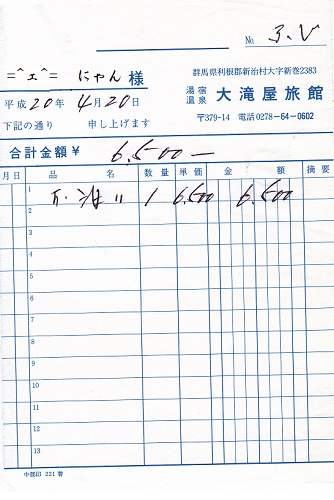 No. 3.
群馬県利根郡新治村大字新巻2383
=^ェ^= にゃん 様
湯宿温泉 大滝屋旅館
平成20年4月20日
〒379-14 電話0278-64-0602
下記の通り 申し上げます
合計金額¥ 6.500—
月日 品名 数量 単価 金額 摘要
1 1 6.500 6.500
2
3
4
5
6
7
8
9
10
11
12
13
中部印 221 替